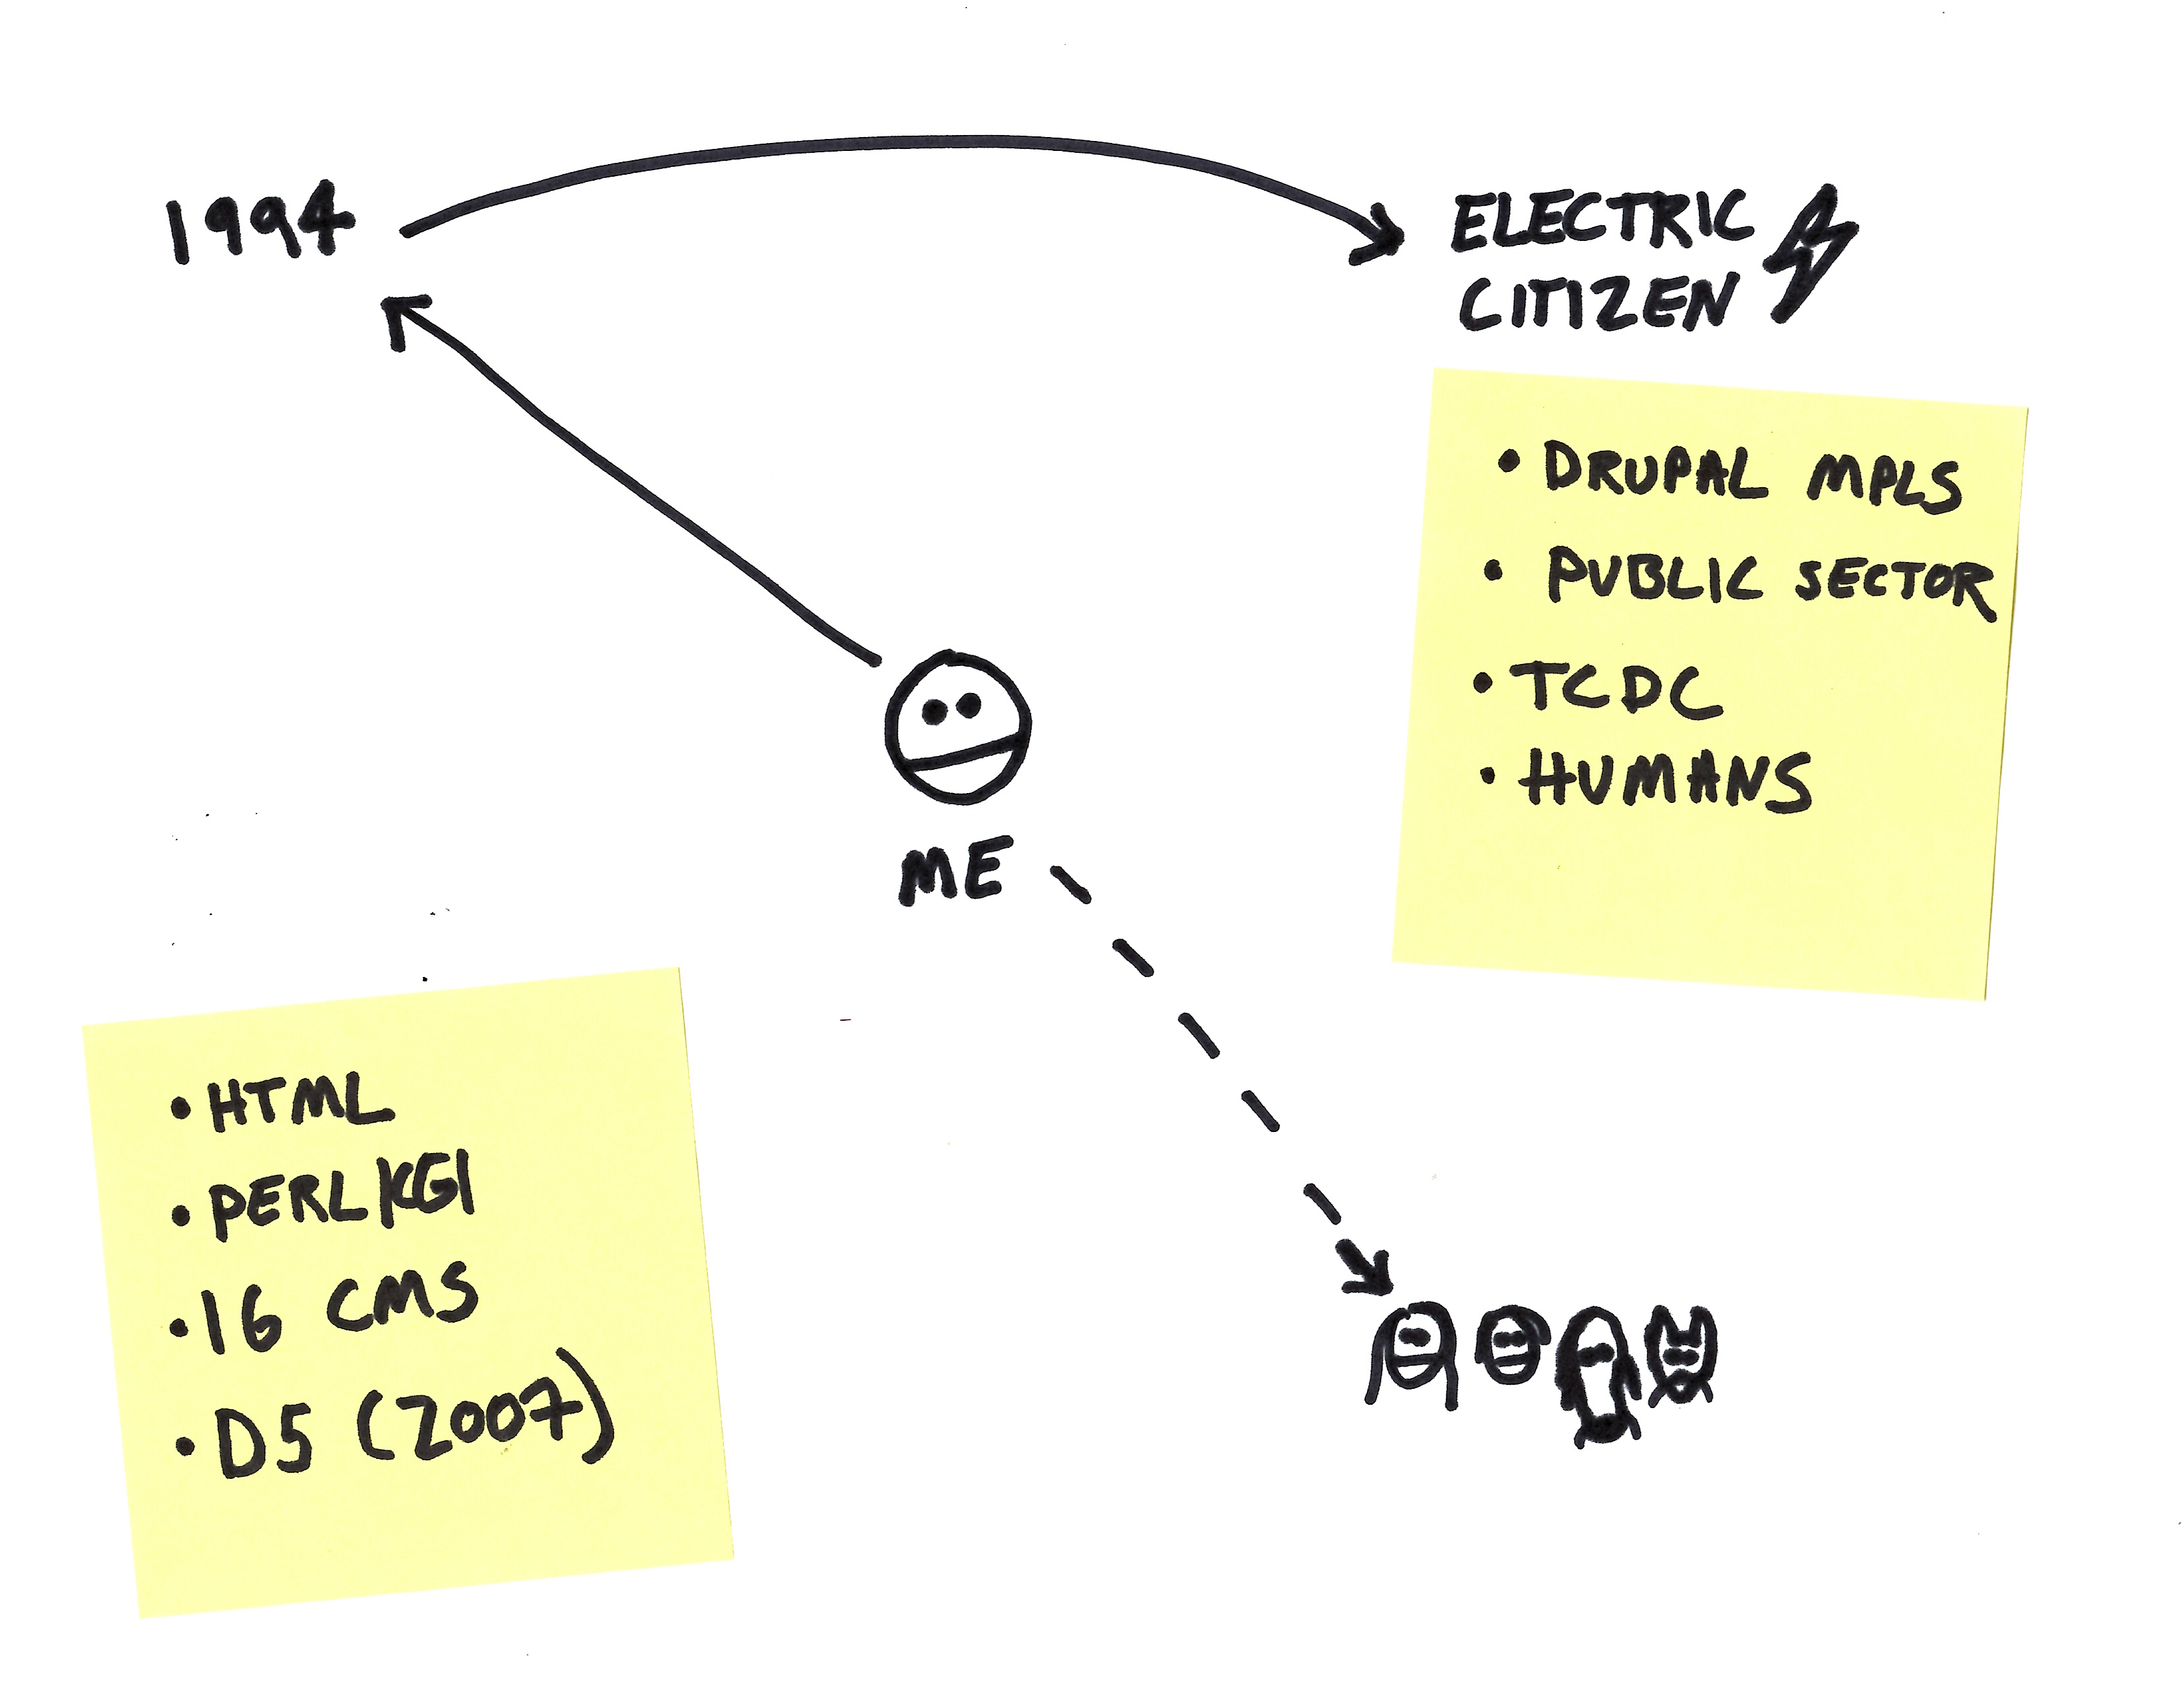 1994
ELECTRIC
CITIZEN
• DRUPAL MPLS
• PUBLIC SECTOR
• TCDC
• HUMANS
ME
• HTML
• PERL/CGI
• 16 CMS
• D5 (2007)